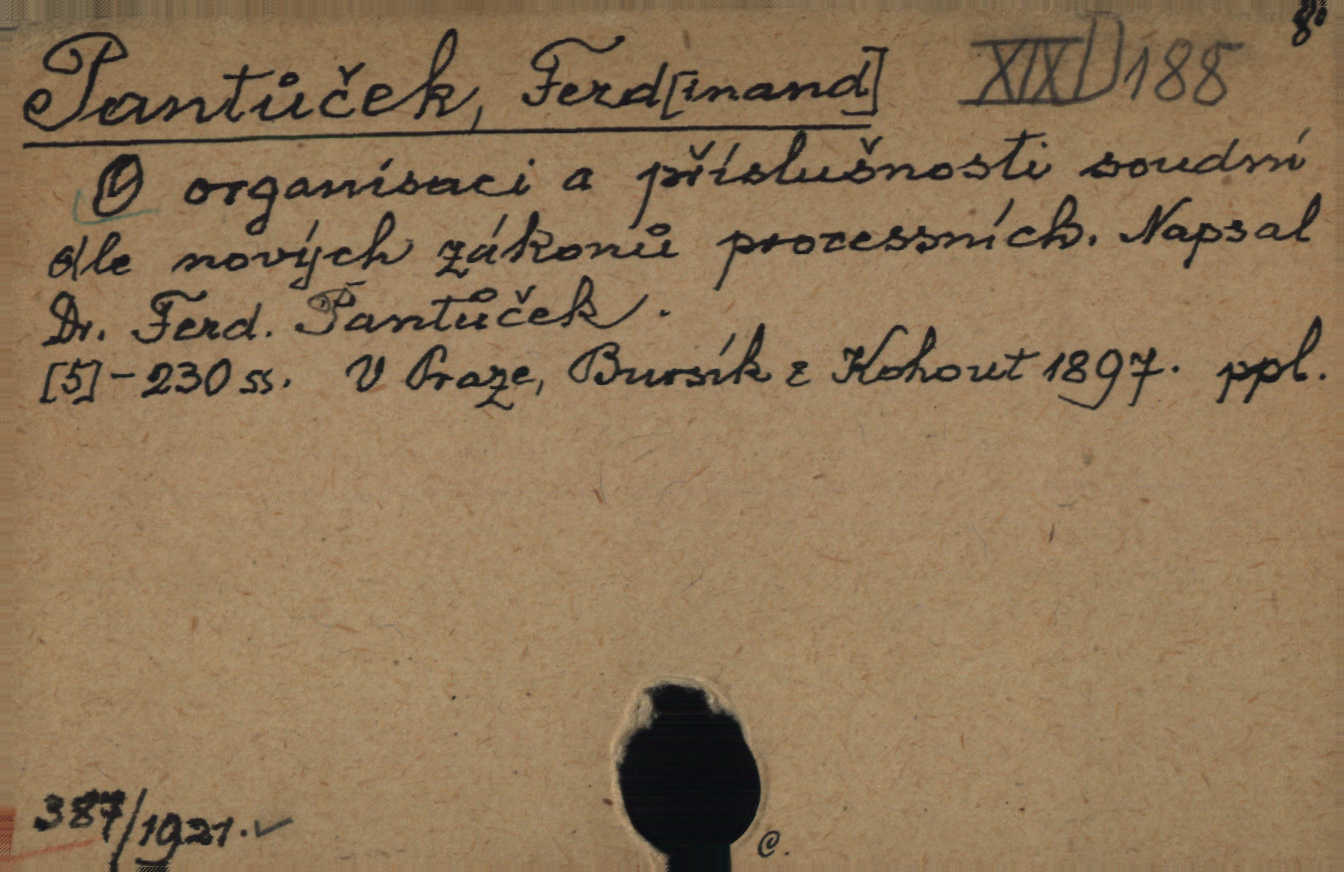 8°
Pantůček, Ferd[inand] XIX D 188
O organisaci a příslušnosti soudní
dle nových zákonů processních. Napsal
Dr. Ferd. Pantůček.
[5]-230 ss. V Praze, Bursík & Kohout 1897. ppl.
387/1921.
C.